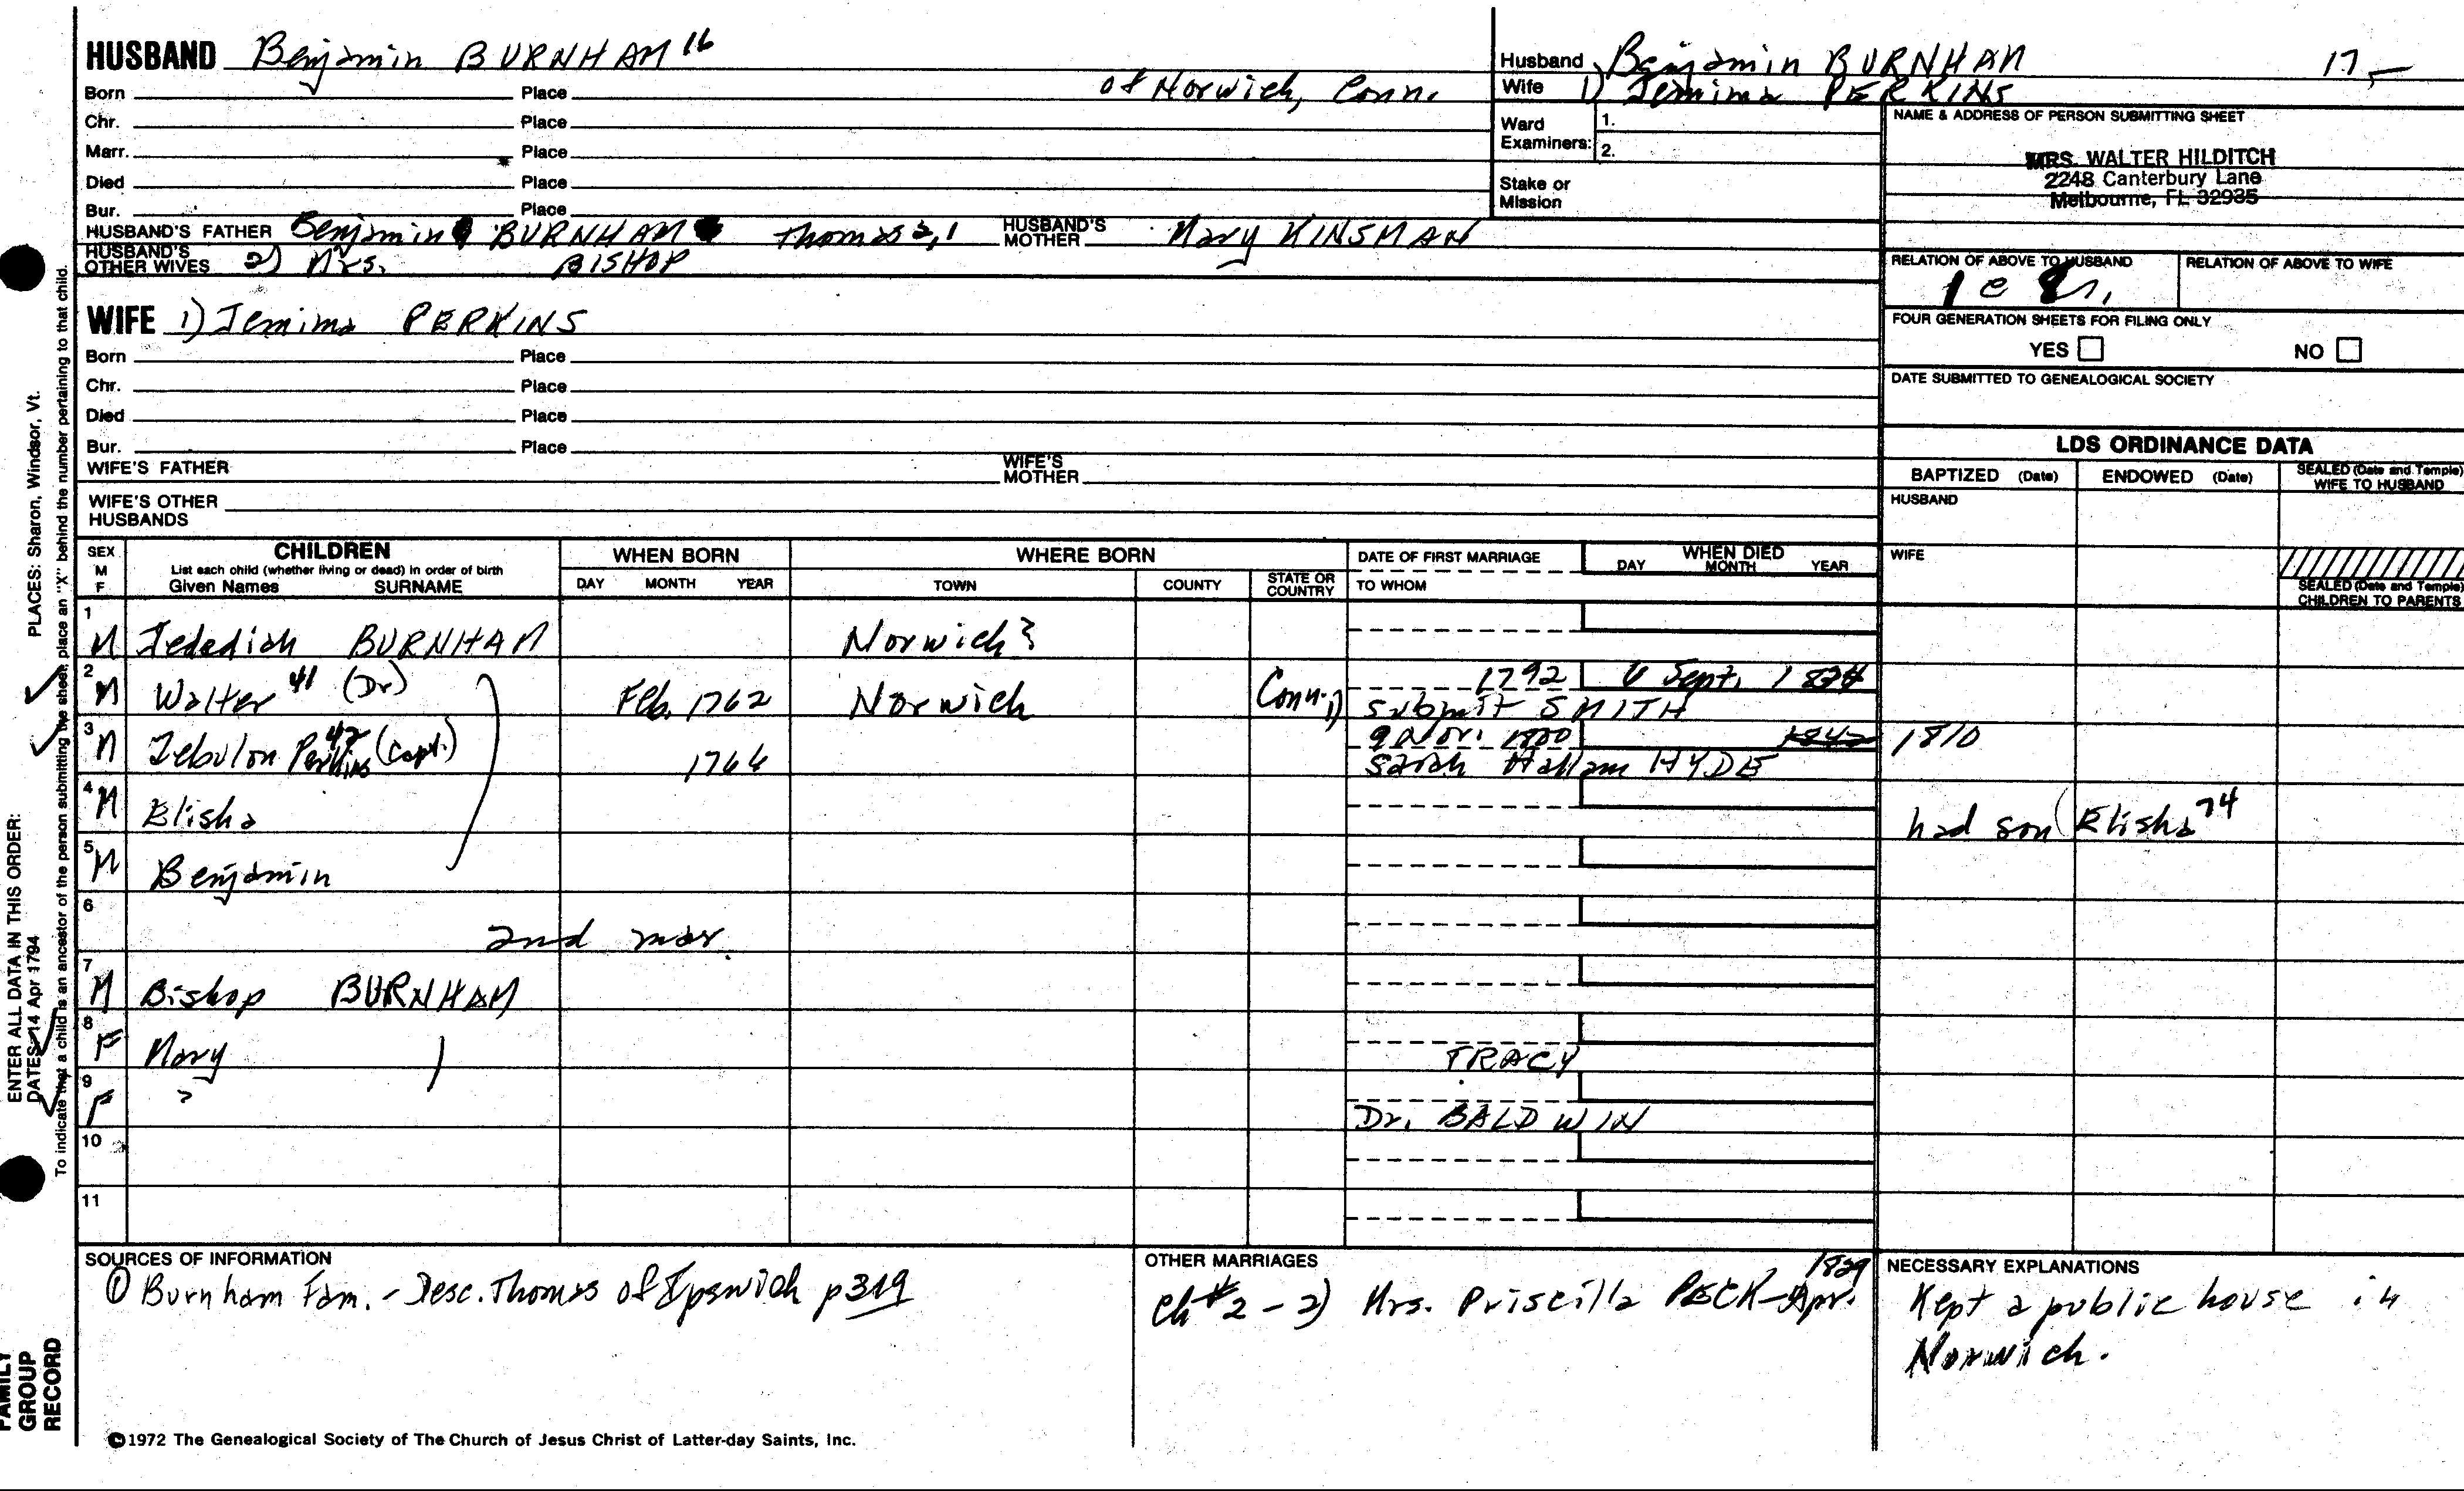 HUSBAND Benjamin BURNHAM 16
Born Place of Norwich, Conn.
Chr. Place
Marr. Place
Died Place
Bur. Place
HUSBAND'S FATHER Benjamin BURNHAM Thomas 2,1 HUSBAND'S MOTHER Mary KINSMAN
HUSBAND'S OTHER WIVES 2) Mrs. BISHOP
Husband Benjamin BURNHAM 17
Wife 1) Jemima PERKINS
Ward Examiners: 1. 2.
Stake or Mission
NAME & ADDRESS OF PERSON SUBMITTING SHEET
MRS. WALTER HILDITCH
2248 Canterbury Lane
Melbourne, FL 32935
RELATION OF ABOVE TO HUSBAND RELATION OF ABOVE TO WIFE
1 c
FOUR GENERATION SHEETS FOR FILING ONLY
YES NO
DATE SUBMITTED TO GENEALOGICAL SOCIETY
WIFE 1) Jemima PERKINS
Born Place
Chr. Place
Died Place
Bur. Place
WIFE'S FATHER WIFE'S MOTHER
WIFE'S OTHER HUSBANDS
LDS ORDINANCE DATA
BAPTIZED (Date) ENDOWED (Date) SEALED (Date and Temple) WIFE TO HUSBAND
HUSBAND
WIFE
SEALED (Date and Temple) CHILDREN TO PARENTS
SEX M F
CHILDREN
List each child (whether living or dead) in order of birth
Given Names SURNAME
WHEN BORN
DAY MONTH YEAR
WHERE BORN
TOWN COUNTY STATE OR COUNTRY
DATE OF FIRST MARRIAGE
TO WHOM
WHEN DIED
DAY MONTH YEAR
1 M Jedediah BURNHAM Norwich?
2 M Walter 41 (Dr) Feb. 1762 Norwich Conn. 1792 Sept. 1)
Submit SMITH
3 M Zebulon Perkins 42 (Capt.) 1766 1800 1810
Sarah Hallam HYDE
4 M Elisha had son Elisha 74
5 M Benjamin
6 2nd mar.
7 M Bishop BURNHAM
8 F Mary TRACY
9 F ? Dr. BALDWIN
10
11
SOURCES OF INFORMATION
① Burnham Fam. - Desc. Thomas of Ipswich p 319
OTHER MARRIAGES
Ch #2 - 2) Mrs. Priscilla PECK - Apr. 1829
NECESSARY EXPLANATIONS
Kept a public house in
Norwich.
©1972 The Genealogical Society of The Church of Jesus Christ of Latter-day Saints, Inc.
FAMILY GROUP RECORD
ENTER ALL DATA IN THIS ORDER:
DATES: 14 Apr 1794
PLACES: Sharon, Windsor, Vt.
To indicate that a child is an ancestor of the person submitting the sheet, place an "X" behind the number pertaining to that child.